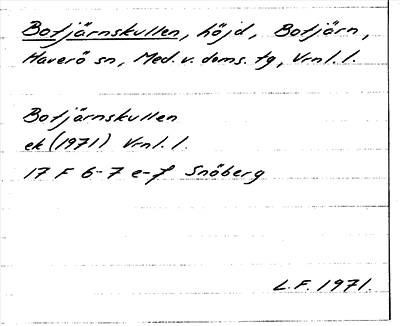 Botjärnskullen, höjd, Botjärn,
Haverö sn, Med. v. doms. tg, Vrnl. l.
Botjärnskullen
ek (1971) Vrnl. l.
17 F 6-7 e-f Snöberg
L.F. 1971.